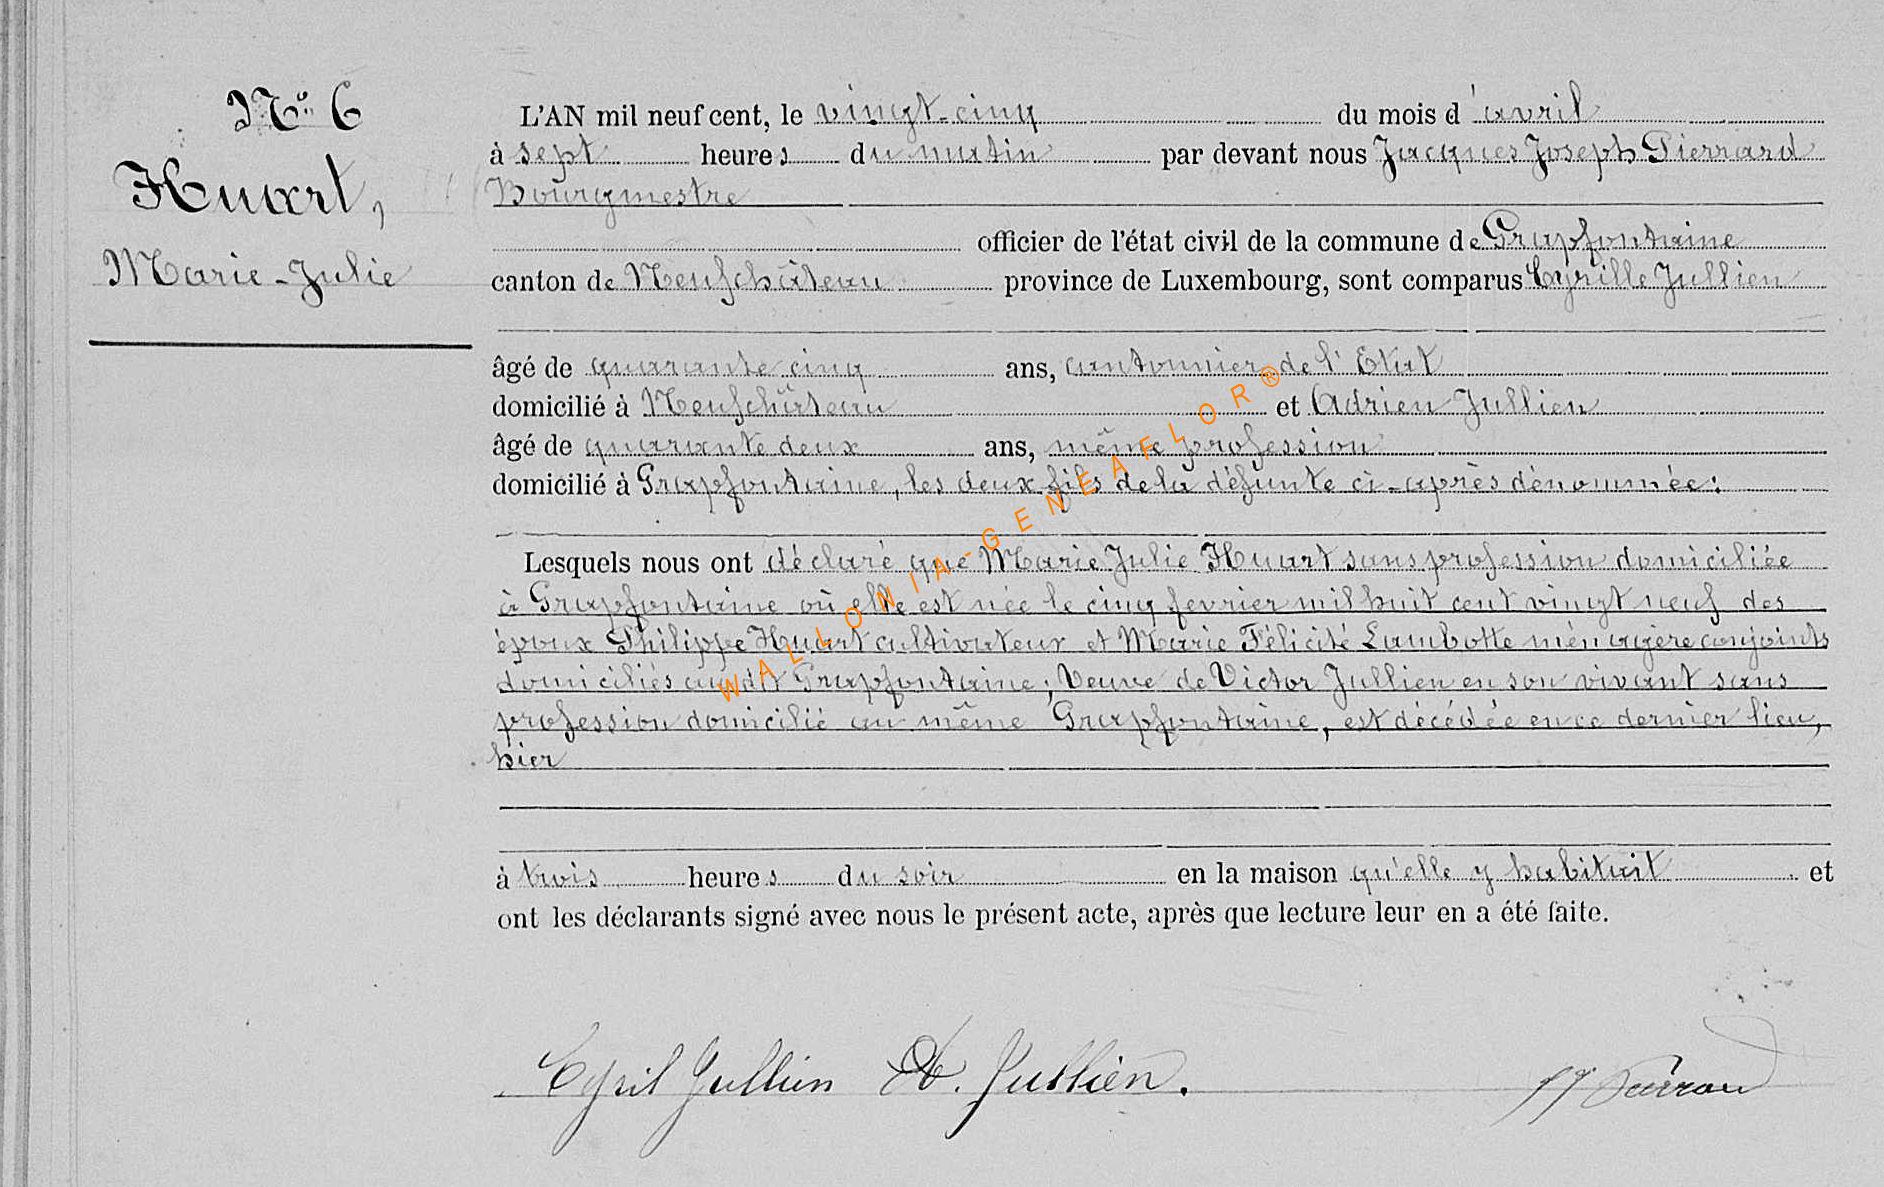 N° 6
Huart,
Marie-Julie
L'AN mil neuf cent, le vingt-cinq du mois d'avril
à sept heures du matin par devant nous Jacques Joseph Pierrard
Bourgmestre
officier de l'état civil de la commune de Grapfontaine
canton de Neufchâteau province de Luxembourg, sont comparus Cyrille Jullien
âgé de quarante cinq ans, cantonnier de l'Etat
domicilié à Neufchâteau et Adrien Jullien
âgé de quarante deux ans, même profession
domicilié à Grapfontaine, les deux fils de la défunte ci-après dénommée:
Lesquels nous ont déclaré que Marie Julie Huart sans profession domiciliée
à Grapfontaine où elle est née le cinq fevrier mil huit cent vingt neuf des
époux Philippe Huart cultivateur et Marie Félicité Lambotte ménagère conjoints
domiciliés au dit Grapfontaine; Veuve de Victor Jullien en son vivant sans
profession domicilié au même Grapfontaine, est décédée en ce dernier lieu,
hier
à trois heures du soir en la maison qu'elle y habitait et
ont les déclarants signé avec nous le présent acte, après que lecture leur en a été faite.
Cyril Jullien A. Jullien. JJ Pierrard
WALLONIA-GENEAFLOR®